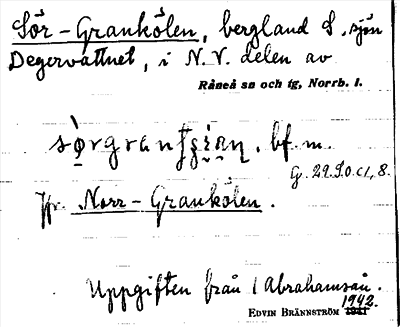 Sör-Grankölen, bergland S. sjön
Degervattnet, i N.V. delen av
Råneå sn och tg, Norrb. l.
bf. m.
G. 29.S.o.c1, 8.
Jfr Norr-Grankölen.
Uppgiften från l Abrahamsån.
1942.
EDVIN BRÄNNSTRÖM 1941